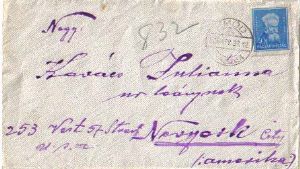 Nagy.
832
Kovács Julianna
úr leánynek
253 Vest 57 Street Nevyork City
U. S. A
(:amerika:)
MAGYARORSZÁG